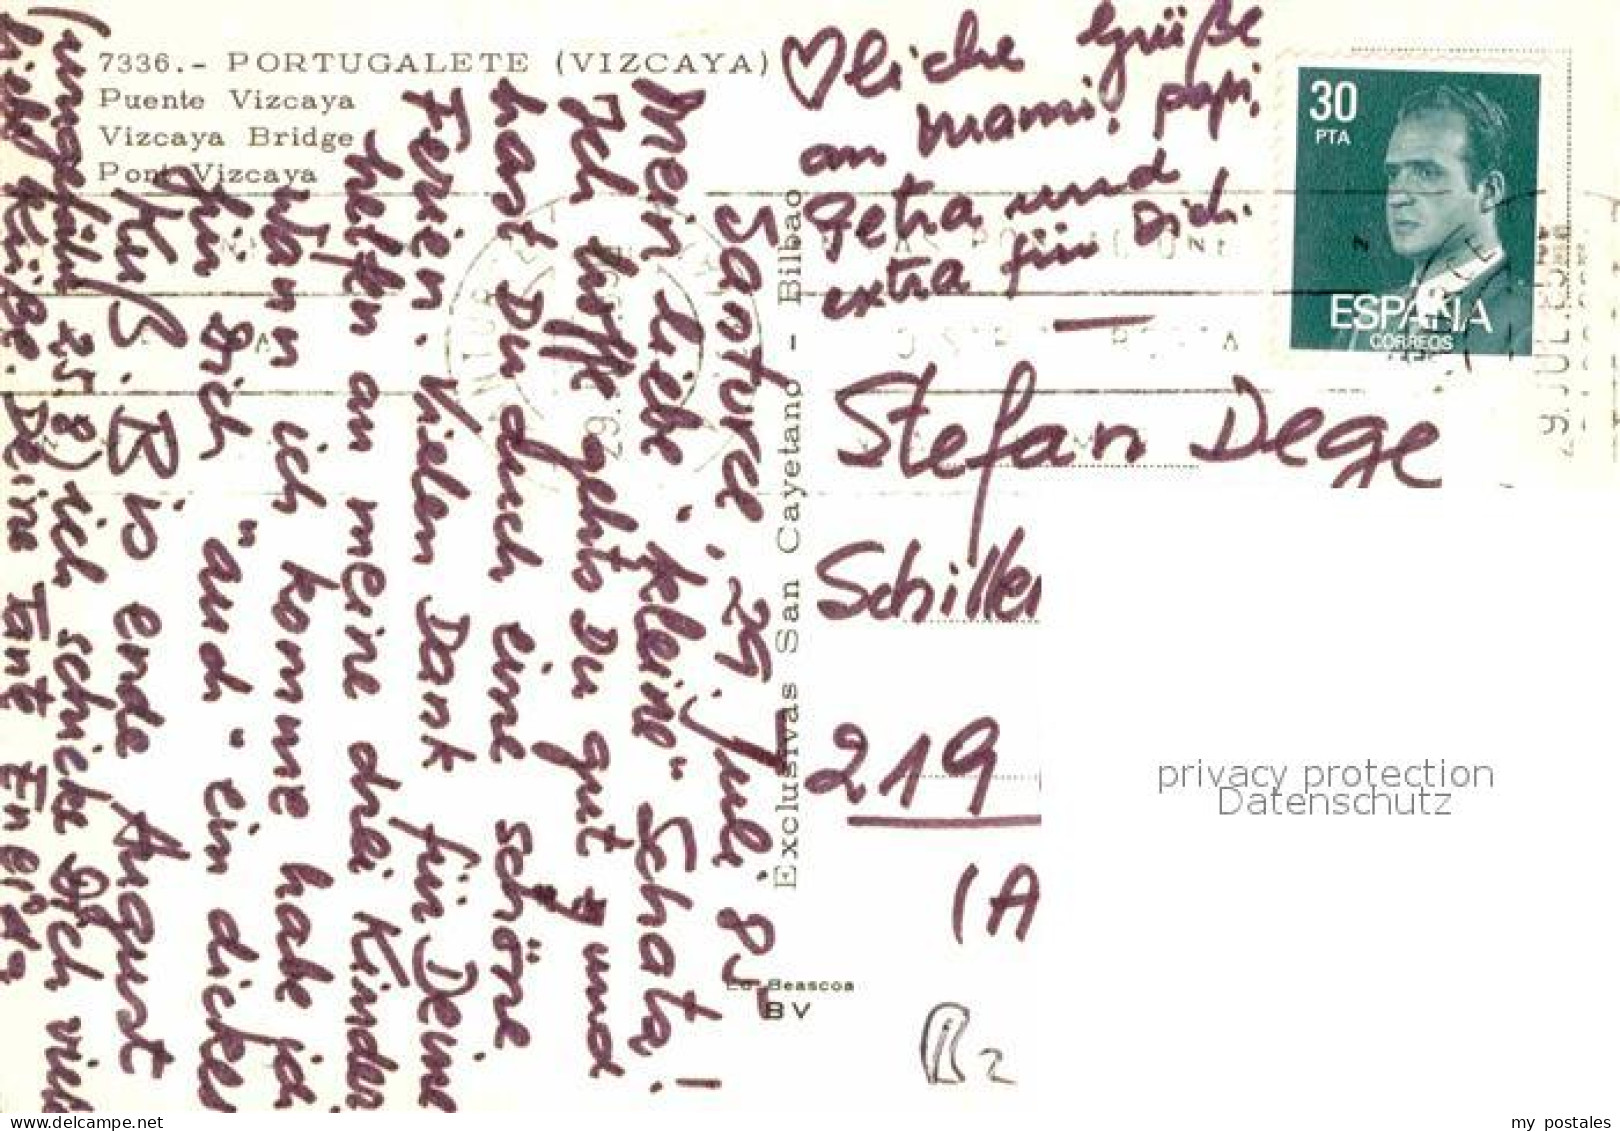 7336.- PORTUGALETE (VIZCAYA)
Puente Vizcaya
Vizcaya Bridge
Pont Vizcaya
♡liche Grüße
an Mami, Papi,
Petra und
extra für Dich.
30
PTA
ESPAÑA
CORREOS
Stefan Dege
Schiller
219
(A
Santurce, 29. Juli 85
Mein liebe, "kleine" Schatz!
Ich hoffe gehts Du gut, und
hast Du auch eine schöne
Ferien. Vielen Dank für Deine
helfen an meine drei Kinder
Wann ich komme habe ich
für Dich "auch" ein dickes
Kuß. Bis ende August
(ungefähr 25.8) ich schicke Dich viel
liebe Küße. Deine Tante Eneida
Exclusivas San Cayetano - Bilbao
Ed. Beascoa
BV
29. JUL.
privacy protection
Datenschutz
my postales